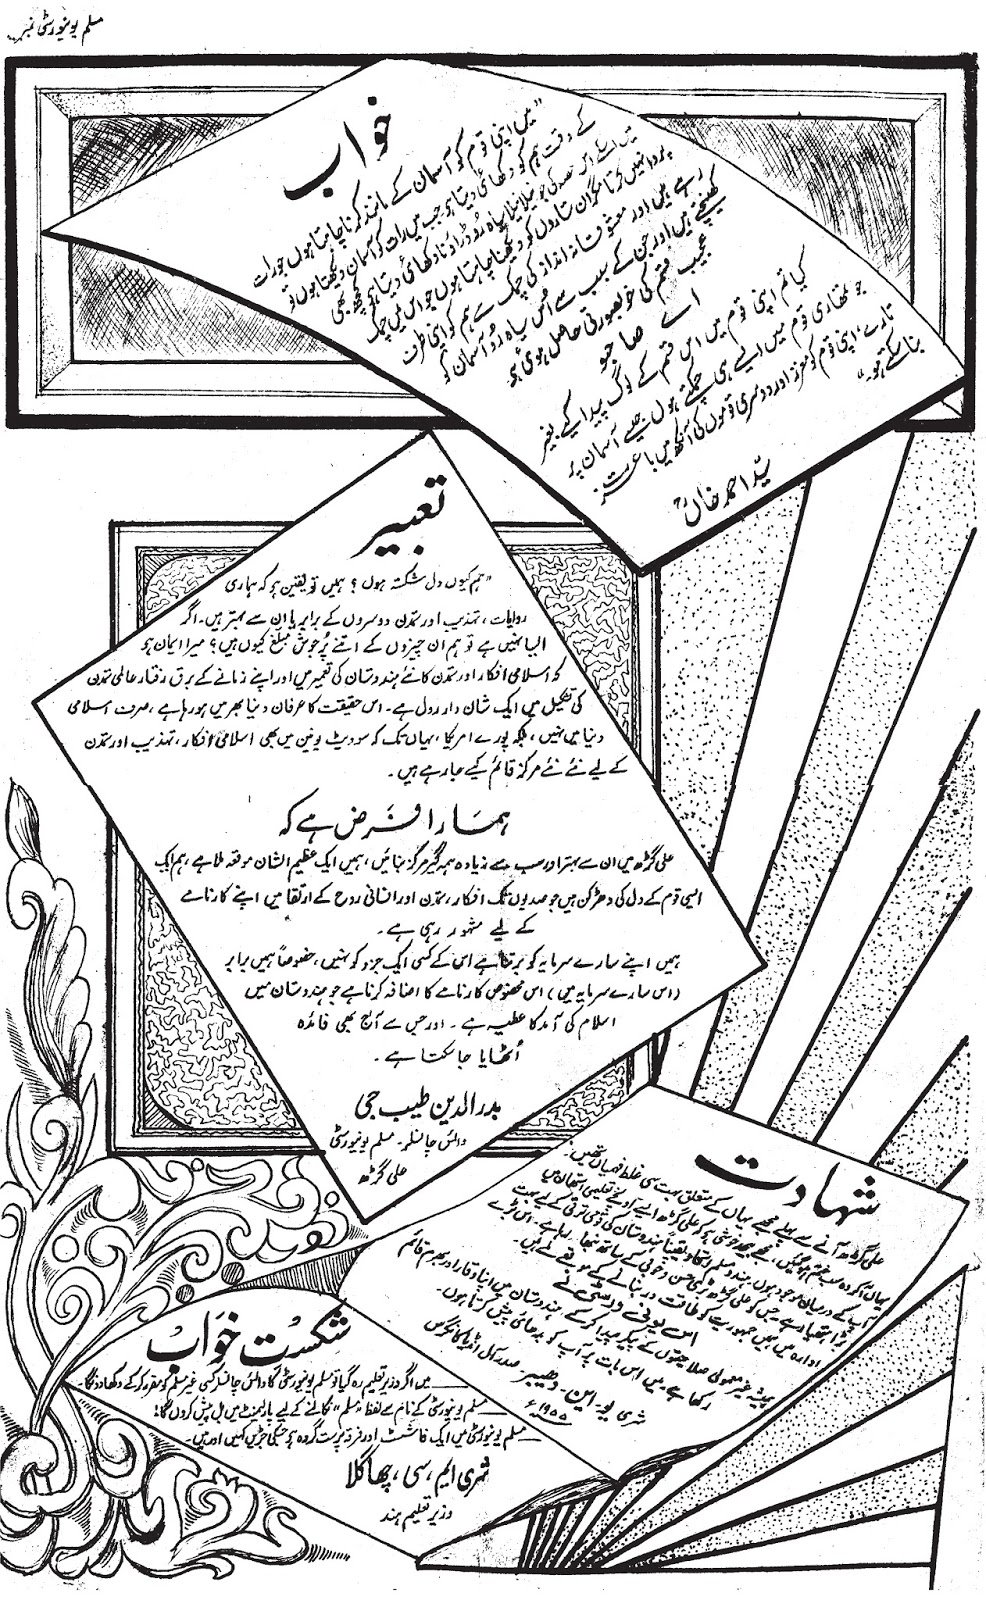 مسلم یونیورسٹی نمبر
خواب
"میں اپنی قوم کو آسمان کے مانند کرنا چاہتا ہوں جو رات
کے وقت ہم کو دکھائی دیتا ہے جب میں رات کو آسمان دیکھتا ہوں تو
میں اسکے اس حصہ کی جو نیلا نیلا سیاہ رو ڈراؤنا دکھائی دیتا ہے کچھ بھی
پروا نہیں کرتا مگر ان ستاروں کو دیکھنا چاہتا ہوں جو اس میں چمک
رہے ہیں اور معشوقانہ انداز کی چمک سے ہم کو اپنی طرف
کھینچتے ہیں اور جن کے سبب سے اُس سیاہ رُو آسمان کو
عجیب قسم کی خوبصورتی حاصل ہوتی ہے
اے صاحبو
کیا تم اپنی قوم میں اس قسم کے لوگ پیدا کیے بغیر
جو تمھاری قوم میں ایسے ہی چمکتے ہوں جیسے آسمان پر
تارے، اپنی قوم کو معزز اور دوسری قوموں کی آنکھ میں باعزت
بنا سکتے ہو۔"
سید احمد خاںؒ
تعبیر
"ہم کیوں دل شکستہ ہوں؟ ہمیں تو یقین ہے کہ ہماری
روایات، تہذیب اور تمدن دوسروں کے برابر یا ان سے بہتر ہیں۔ اگر
ایسا نہیں ہے تو ہم ان چیزوں کے اتنے پُرجوش مبلغ کیوں ہیں؟ میرا ایمان ہے
کہ اسلامی افکار اور تمدن کا نئے ہندوستان کی تعمیر میں اور اپنے زمانے کے برق رفتار عالمی تمدن
کی تشکیل میں ایک شان دار رول ہے۔ اس حقیقت کا عرفان دنیا بھر میں ہو رہا ہے، صرف اسلامی
دنیا میں نہیں، بلکہ پورے امریکا، یہاں تک کہ سوویٹ یونین میں بھی اسلامی افکار، تہذیب اور تمدن
کے لیے نئے نئے مرکز قائم کیے جا رہے ہیں۔
ہمارا فرض ہے کہ
علی گڑھ میں ان سے بہتر اور سب سے زیادہ ہمہ گیر مرکز بنائیں، ہمیں ایک عظیم الشان موقعہ ملا ہے، ہم ایک
ایسی قوم کے دل کی دھڑکن ہیں جو صدیوں تک افکار، تمدن اور انسانی روح کے ارتقا میں اپنے کارنامے
کے لیے مشہور رہی ہے۔
ہمیں اپنے سارے سرمایہ کو برتنا ہے اس کے کسی ایک جزو کو نہیں، خصوصاً ہمیں برابر
(اس سارے سرمایہ میں) اس مخصوص کارنامے کا اضافہ کرنا ہے جو ہندوستان میں
اسلام کی آمد کا عطیہ ہے۔ اور جس سے آج بھی فائدہ
اُٹھایا جا سکتا ہے۔
بدرالدین طیب جی
وائس چانسلر۔ مسلم یونیورسٹی
علی گڑھ
شہادت
علی گڑھ آنے سے پہلے مجھے یہاں کے متعلق بہت سی غلط فہمیاں تھیں۔
یہاں آکر وہ سب ختم ہوگئیں، مجھے خوشی ہے کہ علی گڑھ ایسے تعلیمی استھان میں
آپ کے درمیان موجود ہوں۔ ہندو مسلم ایکتا یقیناً ہندوستان کی قومی ترقی کے لیے بہت
بڑا ہتھیار ہے جس کو علی گڑھ بڑی حسن و خوبی کے ساتھ نبھا رہا ہے۔ اس بڑے
ادارہ میں ہمیں جمہوریت کو طاقت ور بنانے کے موقعے ملے ہیں۔
اس یونی ورسٹی نے
بہت غیر معمولی صلاحیتوں کے پیکر پیدا کر کے ہندوستان میں اپنا وقار اور بھرم قائم
رکھا ہے۔ میں اس بات پہ آپ کو بدھائی پیش کرتا ہوں۔
شری یو۔ این۔ ڈھیبر صدر آل انڈیا کانگریس
۱۹۵۵ء
شکستِ خواب
میں اگر وزیر تعلیم رہ گیا تو مسلم یونیورسٹی کا وائس چانسلر کسی غیر مسلم کو مقرر کر کے دکھا دوں گا۔
مسلم یونیورسٹی کے نام سے لفظ "مسلم" نکالنے کے لیے پارلیمنٹ میں بل پیش کروں گا!
مسلم یونیورسٹی میں ایک فاشسٹ اور فرقہ پرست گروہ ہے جسکی جڑیں کہیں اور ہیں۔
شری ایم، سی، چھاگلا
وزیر تعلیم ہند